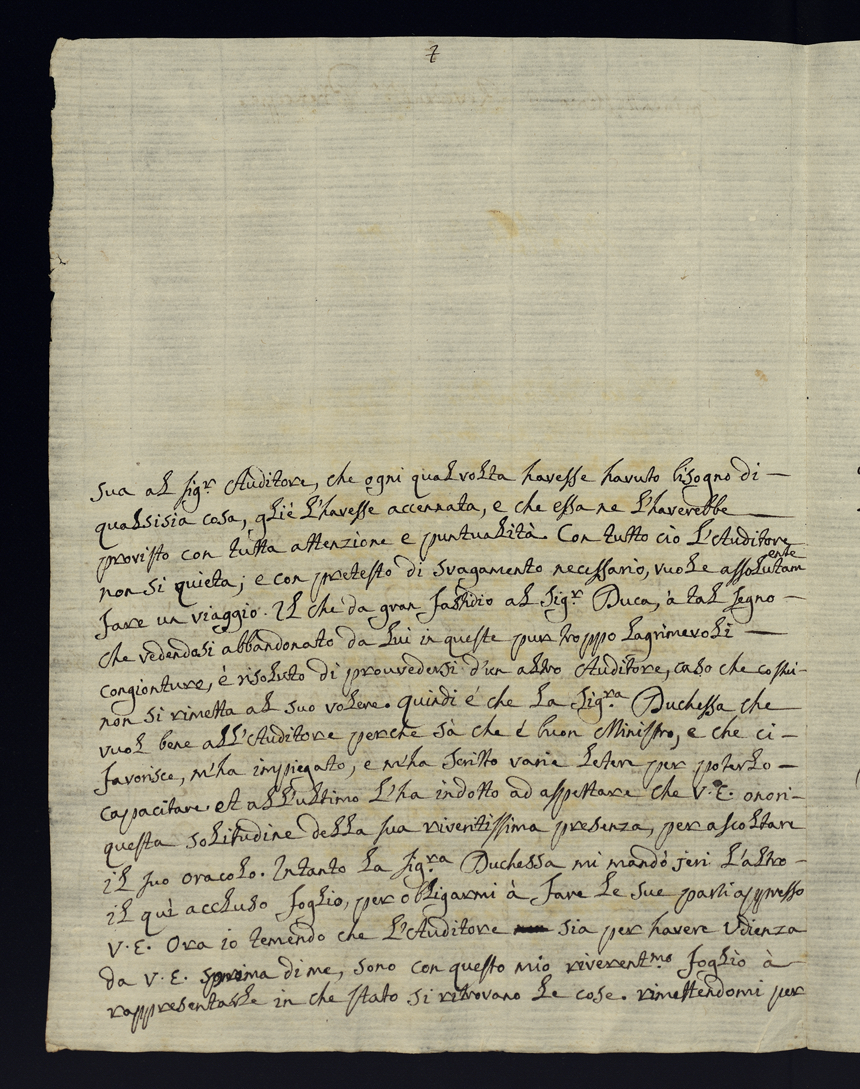 7
sua al sig.r Auditore, che ogni qual volta havesse havuto bisogno di —
qualsisia cosa, glié l'havesse accennata, e che essa ne l'haverebbe —
provisto con tutta attenzione e puntualità. Con tutto ciò l'Auditore
non si quieta; e con pretesto di svagamento necessario, vuole assolutamente
fare un viaggio. Il che da gran fastidio al Sig.r Duca, à tal segno —
che vedendosi abbandonato da lui in queste pur troppo lagrimevoli —
congionture, é risoluto di prouvedersi d'un altro Auditore, caso che costui -
non si rimetta al suo volere. Quindi é che la Sig.ra Duchessa che
vuol bene all'Auditore perche sà che é buon Ministro, e che ci -
favorisce, m'ha impiegato, e m'ha scritto varie letere per poterlo —
capacitare. et all'ultimo l'ha indotto ad aspettare che V. E. onori -
questa solitudine della sua riveritissima presenza, per ascoltare
il suo oracolo. Intanto la Sig.ra Duchessa mi mandò jeri l'altro -
il quì accluso foglio, per obligarmi à fare le sue parti appresso
V. E. Ora io temendo che l'Auditore sia per havere Udienza
da V. E. prima di me, sono con questo mio riverent.mo foglio à
rappresentarle in che stato si ritrovano le cose. rimettendomi per